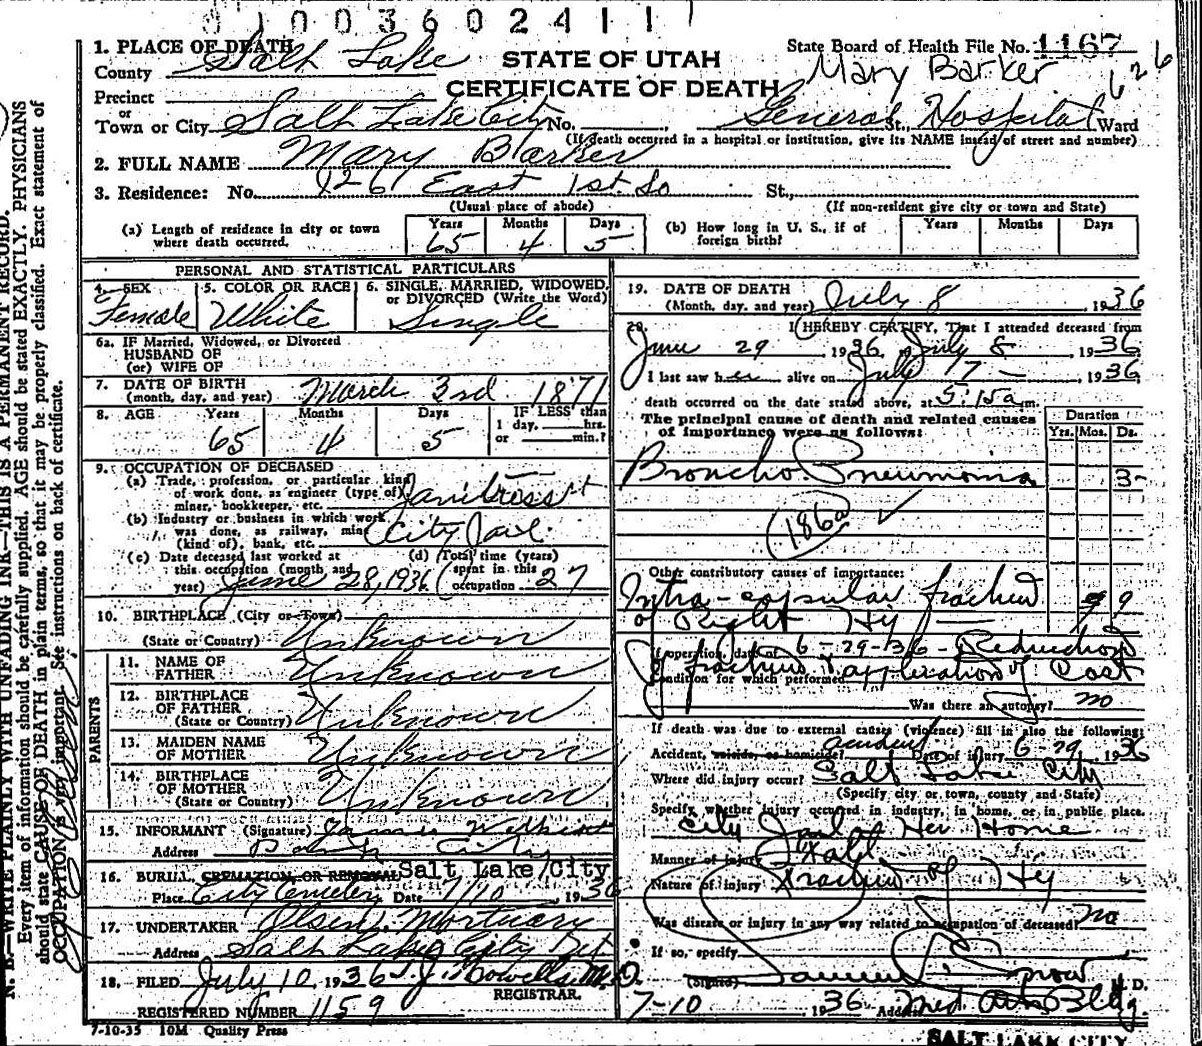 0 1 0 0 3 6 0 2 4 1 1
1. PLACE OF DEATH
County Salt Lake
STATE OF UTAH
CERTIFICATE OF DEATH
State Board of Health File No. 1167
Mary Barker 626
Precinct
or
Town or City Salt Lake City No. General St., Hospital Ward
(If death occurred in a hospital or institution, give its NAME instead of street and number)
2. FULL NAME Mary Barker
3. Residence: No. 126 East 1st So St.,
(Usual place of abode) (If non-resident give city or town and State)
(a) Length of residence in city or town where death occurred. Years 65 Months 4 Days 5
(b) How long in U. S., if of foreign birth? Years Months Days
PERSONAL AND STATISTICAL PARTICULARS
4. SEX Female
5. COLOR OR RACE White
6. SINGLE, MARRIED, WIDOWED, or DIVORCED (Write the Word) Single
6a. IF Married, Widowed, or Divorced
HUSBAND OF
(or) WIFE OF
7. DATE OF BIRTH
(month, day, and year) March 3rd 1871
8. AGE Years 65 Months 4 Days 5
IF LESS than
1 day, hrs.
or min.?
9. OCCUPATION OF DECEASED
(a) Trade, profession, or particular kind
of work done, as engineer (type of)
miner, bookkeeper, etc. Janitress
(b) Industry or business in which work
was done, as railway, mine
(kind of), bank, etc. City Jail
(c) Date deceased last worked at
this occupation (month and
year) June 28, 1936
(d) Total time (years)
spent in this
occupation 27
10. BIRTHPLACE (City or Town)
(State or Country) Unknown
PARENTS
11. NAME OF
FATHER Unknown
12. BIRTHPLACE
OF FATHER
(State or Country) Unknown
13. MAIDEN NAME
OF MOTHER Unknown
14. BIRTHPLACE
OF MOTHER
(State or Country) Unknown
15. INFORMANT (Signature)
Address City
16. BURIAL, CREMATION, OR REMOVAL Salt Lake City
Place City Cemetery Date 7/10 1936
17. UNDERTAKER Olsen Mortuary
Address Salt Lake City Ut
18. FILED July 10, 1936 T. J. Howells M.D.
REGISTRAR.
REGISTERED NUMBER 1159
7-10-35 10M Quality Press
19. DATE OF DEATH
(Month, day, and year) July 8, 1936
20. I HEREBY CERTIFY, That I attended deceased from
June 29, 1936, July 8, 1936
I last saw her alive on July 7, 1936
death occurred on the date stated above, at 5:15 a m.
The principal cause of death and related causes
of importance were as follows:
Duration
Yrs. Mos. Ds.
Broncho Pneumonia 3
(186a) ✓
Other contributory causes of importance:
Intra-capsular fracture 9
of Right Hip
If operation, date of 6-29-36 - Reduction
of fracture & application of Cast
Condition for which performed
Was there an autopsy? no
If death was due to external causes (violence) fill in also the following:
Accident, suicide, or homicide? accident Date of injury 6-29, 1936
Where did injury occur? Salt Lake City
(Specify city or town, county and State)
Specify whether injury occurred in industry, in home, or in public place.
City Jail Her Home
Manner of injury Fall
Nature of injury Fracture of Hip
Was disease or injury in any way related to occupation of deceased? no
If so, specify
(Signed) M. D.
7-10, 1936 Address Med Arts Bldg.
SALT LAKE CITY
N. B.—WRITE PLAINLY WITH UNFADING INK—THIS IS A PERMANENT RECORD.
Every item of information should be carefully supplied. AGE should be stated EXACTLY. PHYSICIANS
should state CAUSE OF DEATH in plain terms, so that it may be properly classified. Exact statement of
OCCUPATION is very important. See instructions on back of certificate.